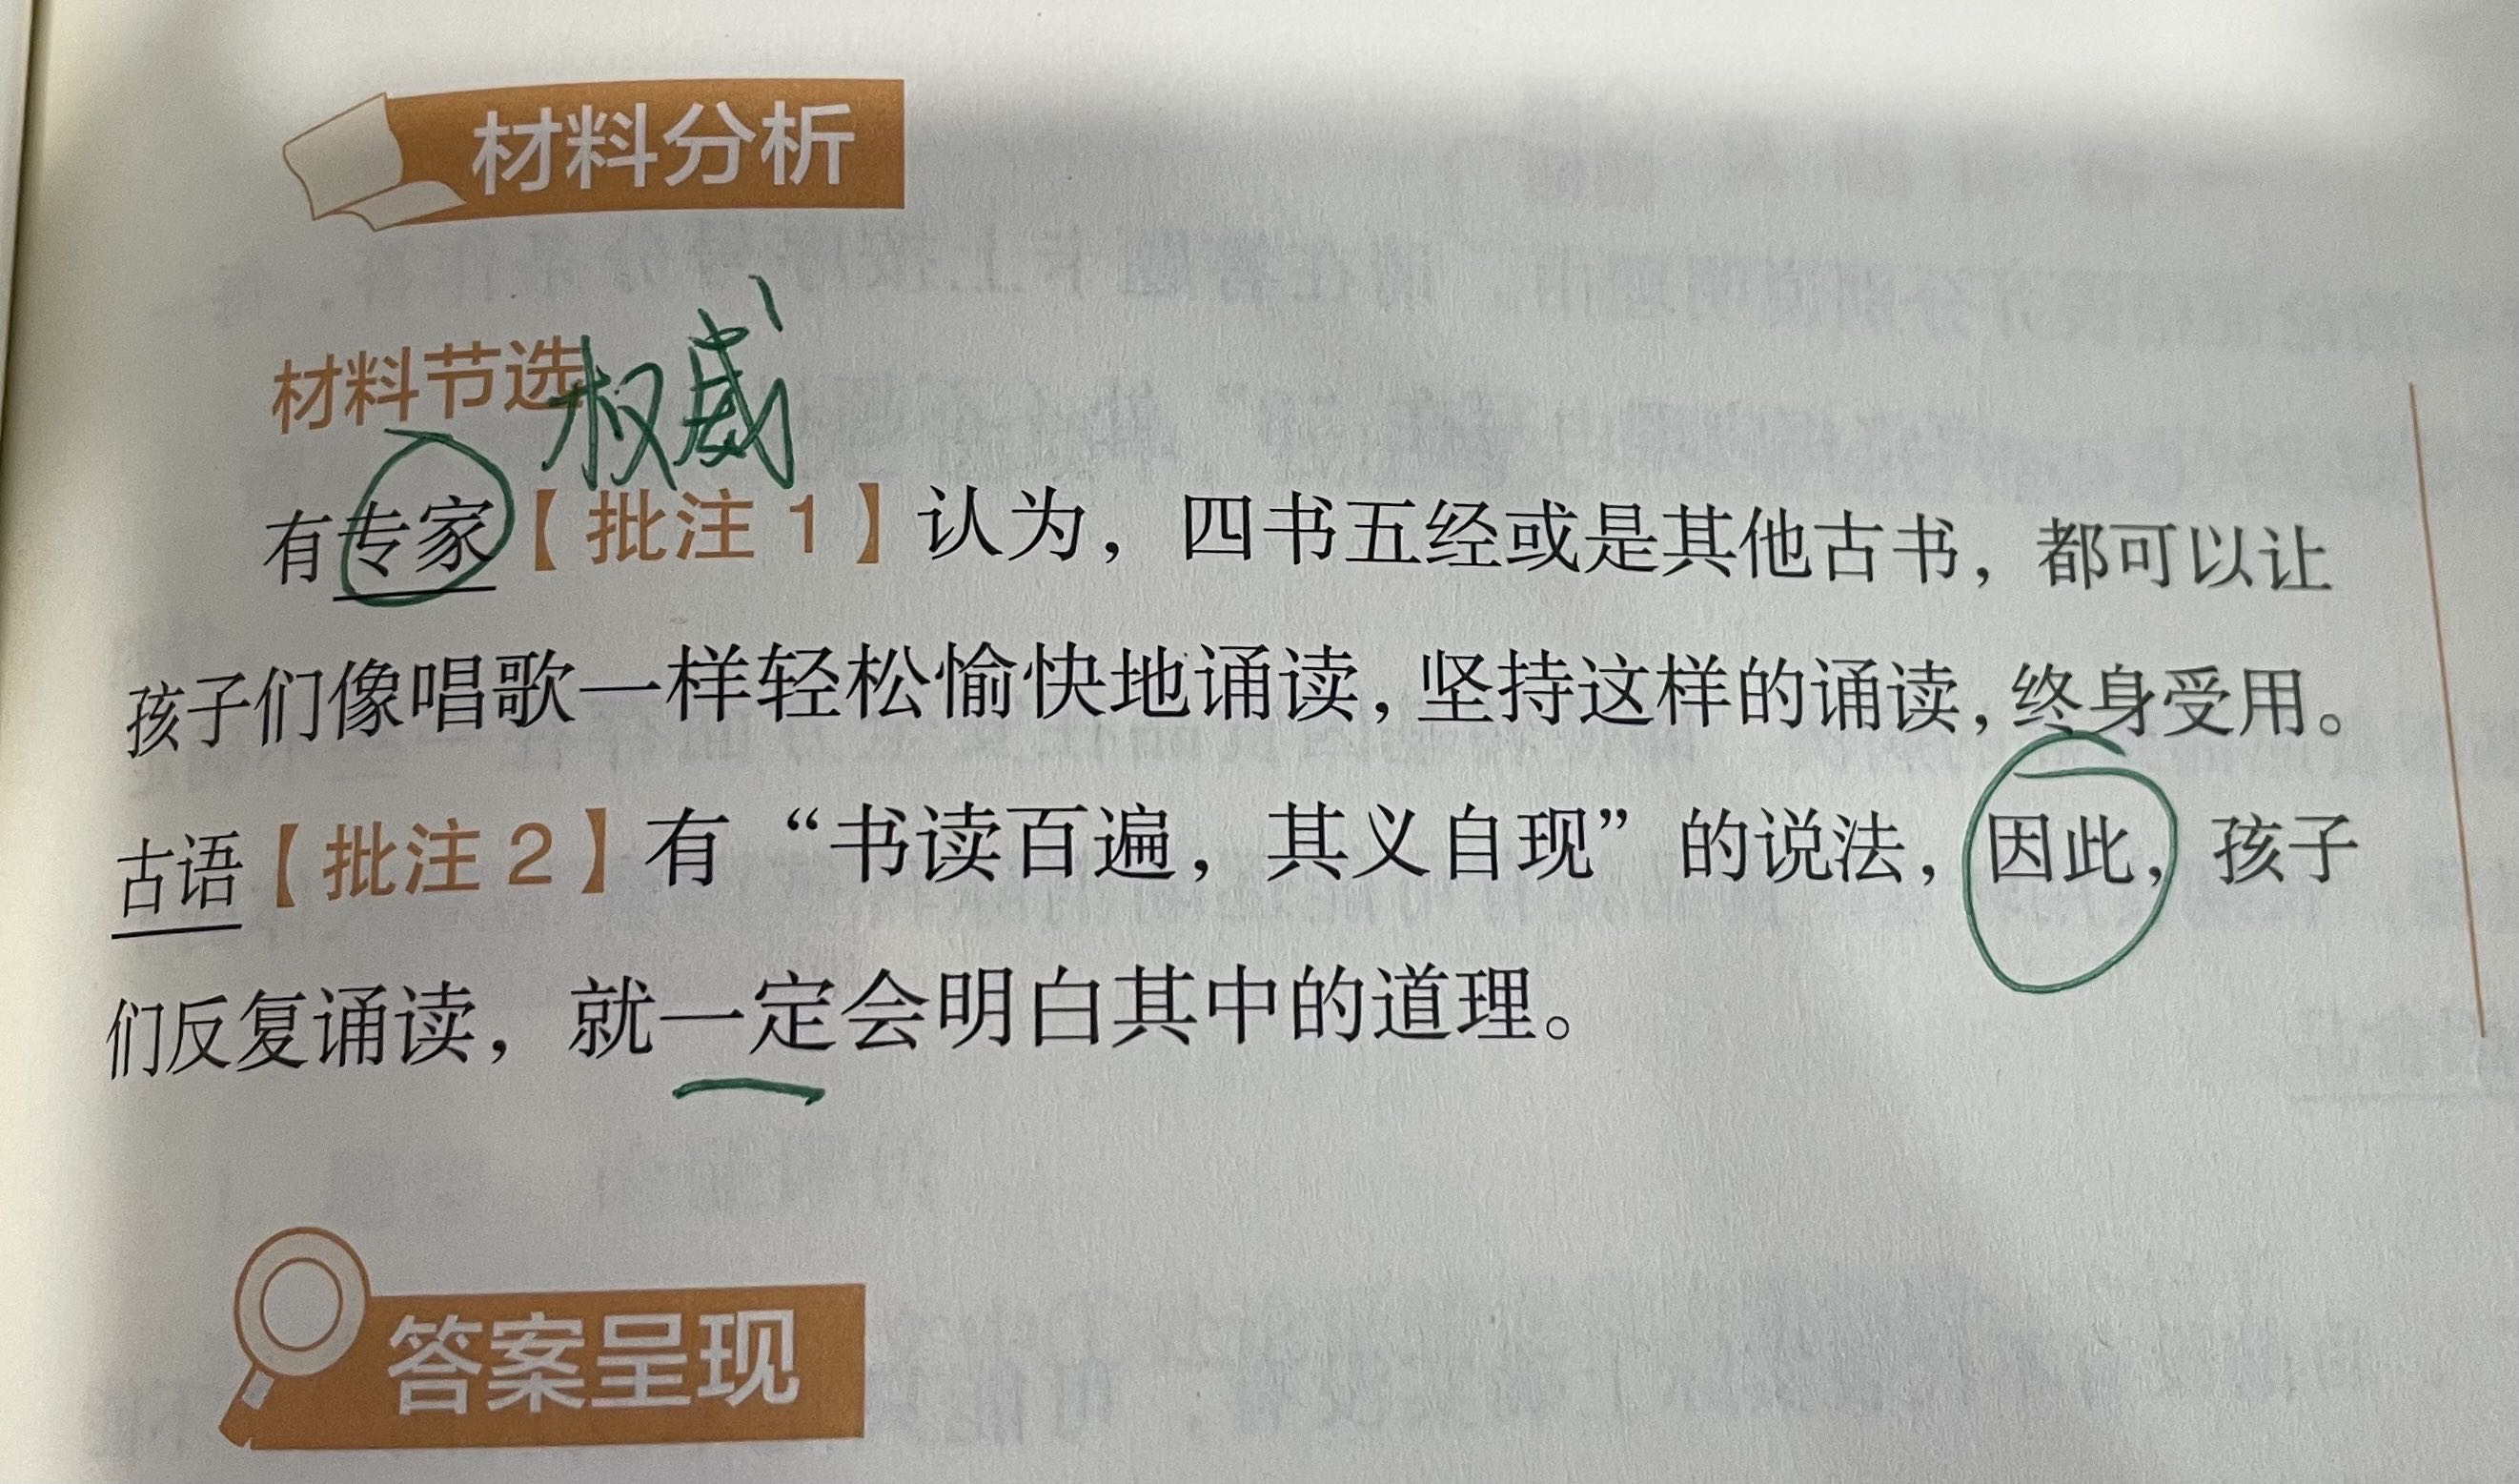 材料分析
材料节选
权威
有专家【批注1】认为，四书五经或是其他古书，都可以让
孩子们像唱歌一样轻松愉快地诵读，坚持这样的诵读，终身受用。
古语【批注2】有“书读百遍，其义自现”的说法，因此，孩子
们反复诵读，就一定会明白其中的道理。
答案呈现